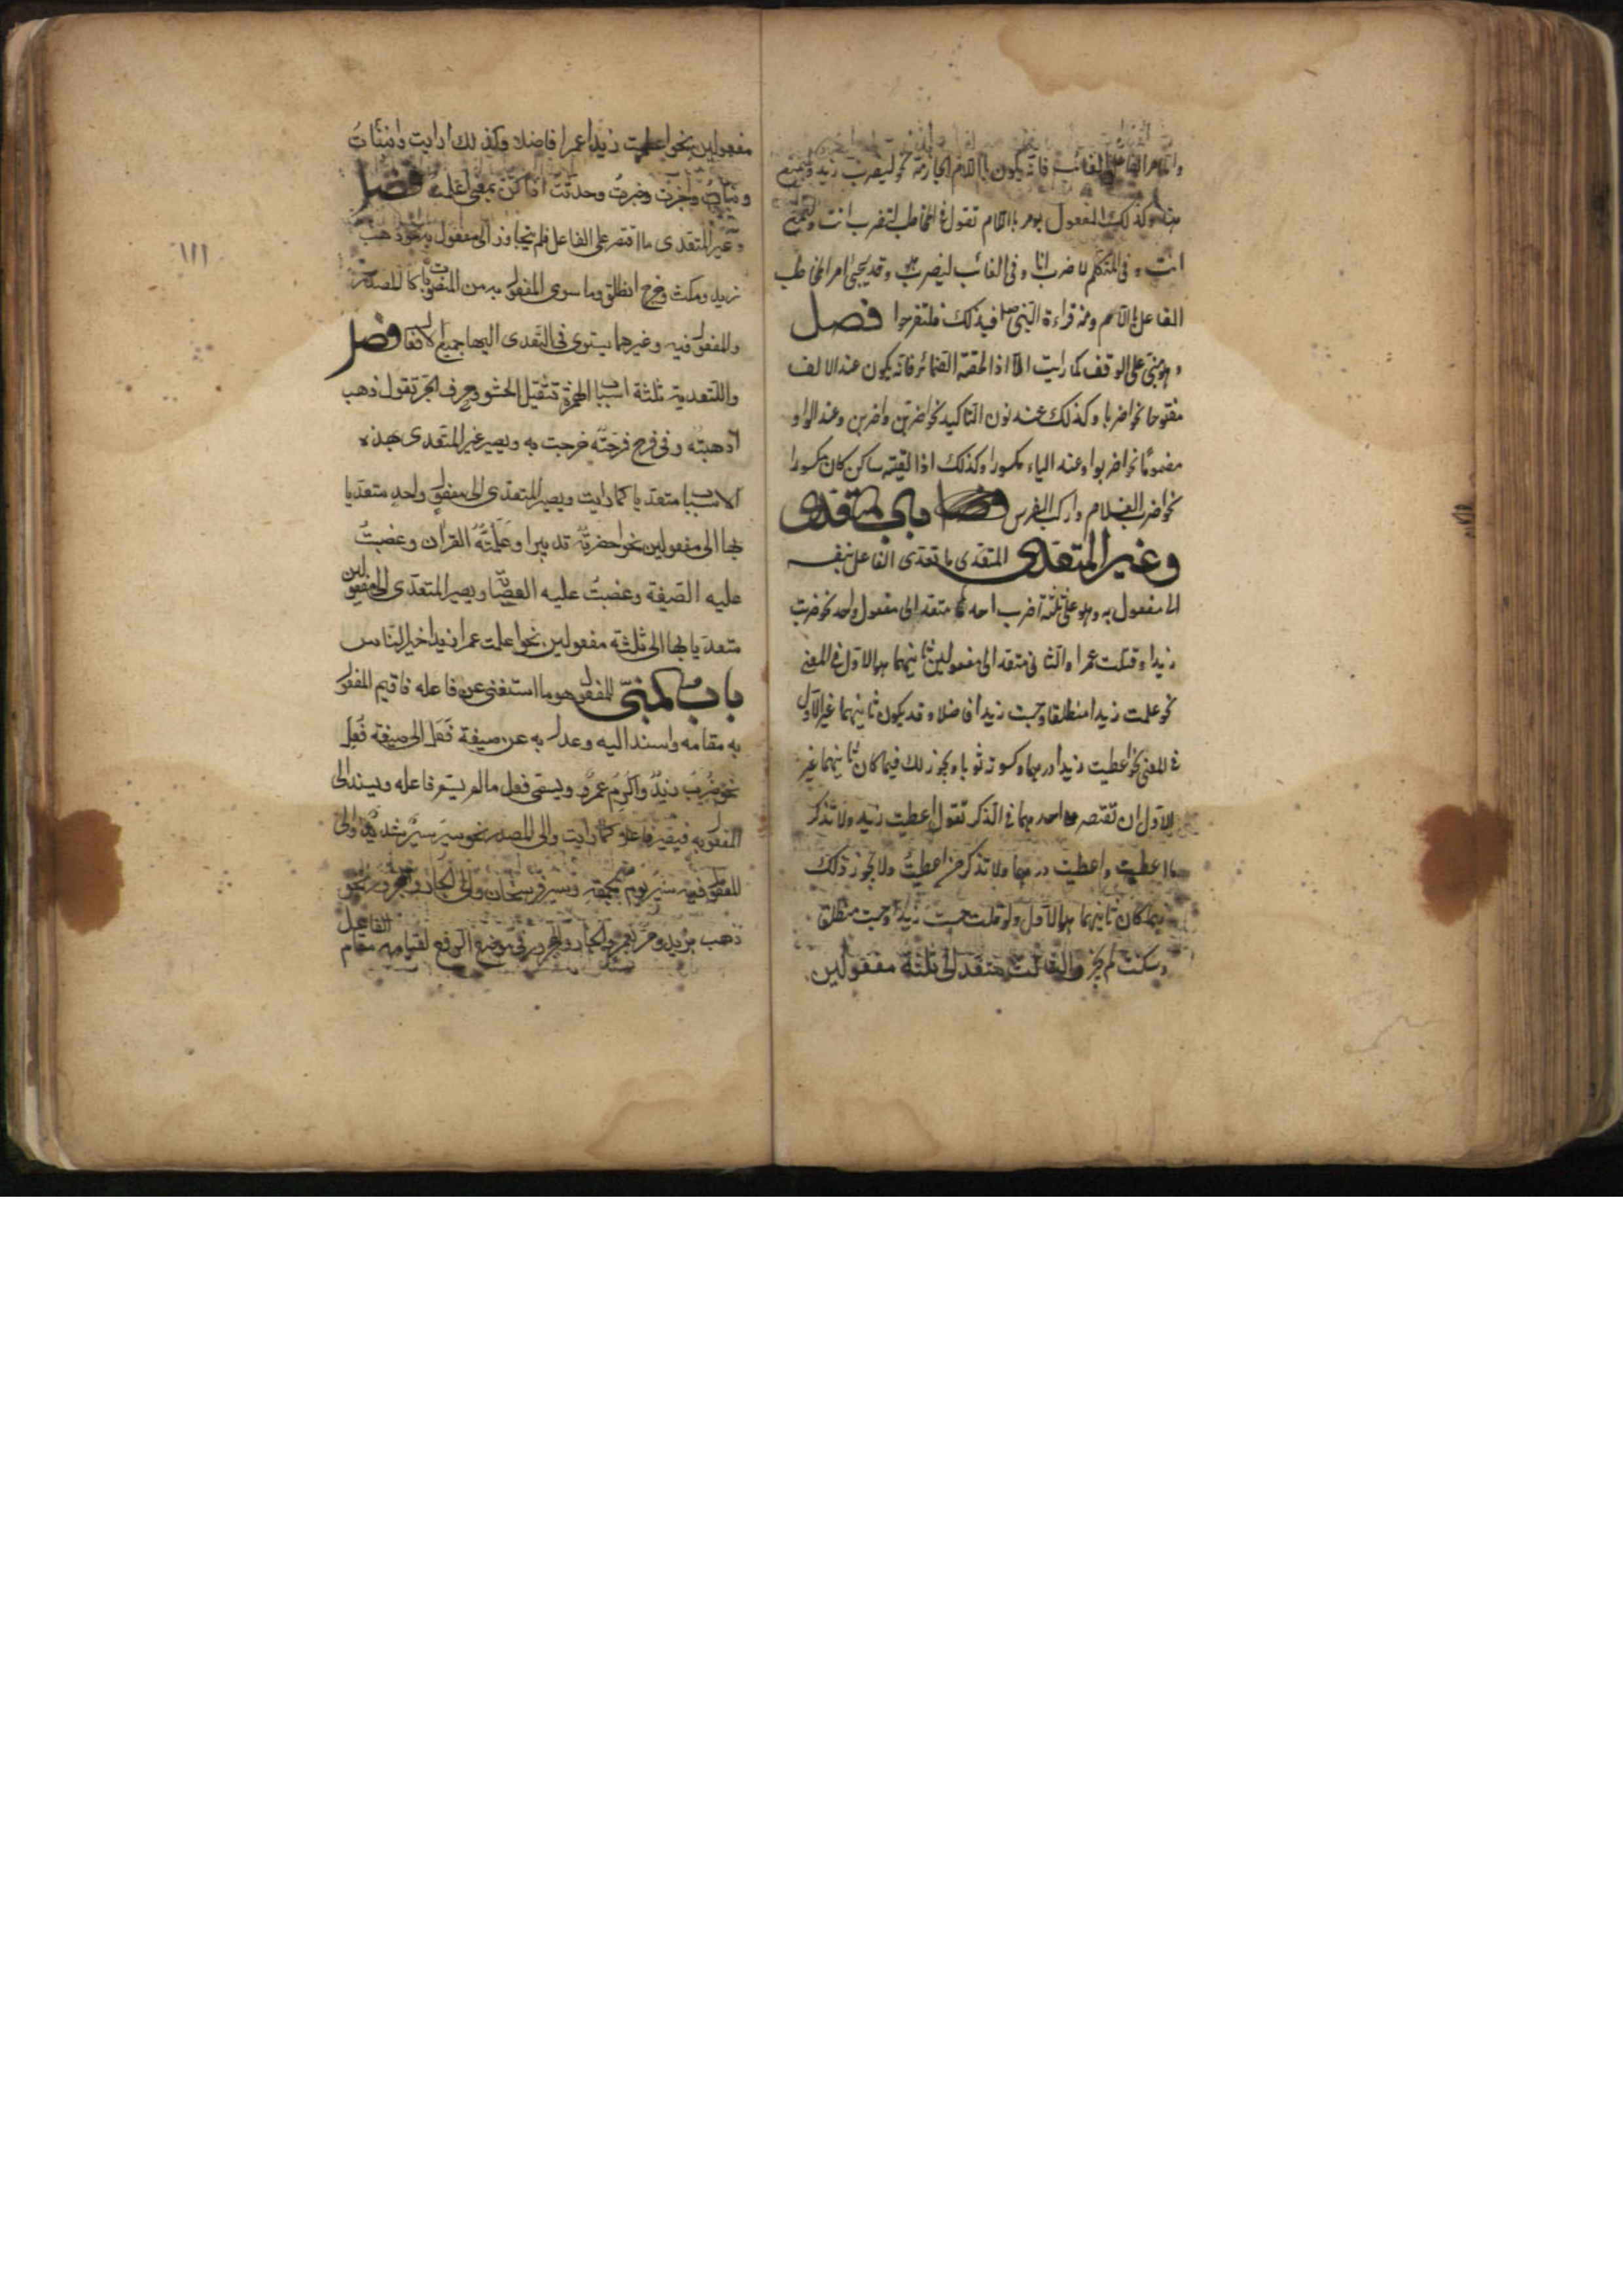 والامر الغائب فانه يكون باللام الجازمة نحو ليضرب زيد ويمتنع
هند وكذلك المفعول يومر باللام تقول في المخاطب لتضرب انت ولتمتنع
انت وفي المتكلم لاضرب انا وفي الغائب ليضرب هو وقد يجئ امر المخاطب
الفاعل باللام ومنه قراءة النبي صلعم فبذلك فلتفرحوا فصل
وهو مبني على الوقف كما رايت الا اذا الحقته الضمائر فانه يكون عند الالف
مفتوحا نحو اضربا وكذلك عند نون التاكيد نحو اضربن واضربن وعند الواو
مضموما نحو اضربوا وعند الياء مكسورا وكذلك اذا لقيته ساكن كان مكسورا
نحو اضرب الغلام واركب الفرس باب المتعدى
وغير المتعدى المتعدى ما تعدى الفاعل بنفسه
الى مفعول به وهو على ثلثة اضرب احدها متعد الى مفعول واحد نحو ضربت
زيدا وقتلت عمرا والثانى متعد الى مفعولين ثانيهما هو الاول في المعنى
نحو علمت زيدا منطلقا وحسبت زيدا فاضلا وقد يكون ثانيهما غير الاول
في المعنى نحو اعطيت زيدا درهما وكسوته ثوبا ويجوز لك فيما كان ثانيهما غير
الاول ان تقتصر احدهما في الذكر تقول اعطيت زيد ولا تذكر
ما اعطيت واعطيت درهما ولا تذكر من اعطيت ولا يجوز ذلك
فيما كان ثانيهما هو الاول ولو قلت حسبت زيدا وحسبت منطلقا
وسكت لم يجز والثالث متعد الى ثلثة مفعولين
مفعولين نحو اعلمت زيدا عمرا فاضلا وكذلك ارايت وانبئات
ونبات واخبرت وخبرت وحدثت اذا كن بمعنى اعلمت فصل
وغير المتعدى ما اقتصر على الفاعل فلم يتجاوز الى مفعول به نحو ذهب
زيد ومكث وخرج انطلق وما سوى المفعول به من المنصوبات كالمصدر
والمفعول فيه وغيرهما يستوى في التعدى اليها جميع الافعال فصل
وللتعدية ثلثة اسباب الهمزة تثقيل الحشو وحرف الجر تقول ذهب
اذهبته وفى فرح فرحته خرجت به ويصير غير المتعدى بهذه
الاسباب متعديا كما رايت ويصير المتعدى الى مفعول واحد متعديا
بها الى مفعولين نحو احضرته بيرا وعلمته القران وغضبت
عليه الضيعة وغضبت عليه ويصير المتعدى الى مفعولين
متعديا بها الى ثلثة مفعولين نحو اعلمت عمرا زيدا خير الناس
باب المبنى للمفعول هو ما استغنى عن فاعله فاقيم المفعول
به مقامه واسند اليه وعدل به عن صيغة فعل الى صيغة فعل
نحو ضرب زيد واكرم عمرو ويسمى فعل ما لم يسم فاعله ويسند الى
المفعول به فيصير فاعله كما رايت والى المصدر نحو سير سير شديد والى
المفعول فيه سير يوم الجمعة وسير فرسخان والى الجار والمجرور نحو
ذهب بزيد ومر بعمرو والجار والمجرور في موضع الرفع لقيامه مقام الفاعل
١١١